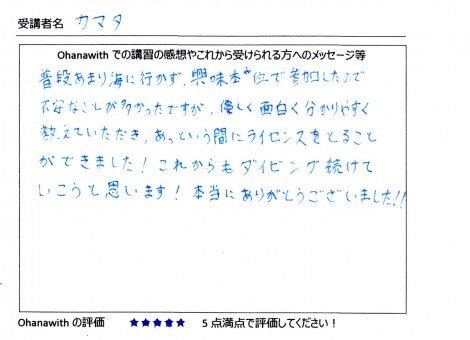 受講者名 カマタ
Ohanawith での講習の感想やこれから受けられる方へのメッセージ等
普段あまり海に行かず、興味本位で参加したので
不安なことが多かったですが、優しく面白く分かりやすく
教えていただき、あっという間にライセンスをとること
ができました！これからもダイビング続けて
いこうと思います！本当にありがとうございました!!
Ohanawith の評価 ★★★★★ 5 点満点で評価してください！